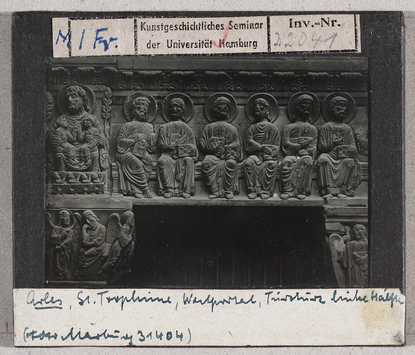 M / Fr.
Kunstgeschichtliches Seminar
der Universität Hamburg
Inv.-Nr.
22041
Arles, St. Trophime, Westportal, Türsturz linke Hälfte
(Foto Marburg 31404)